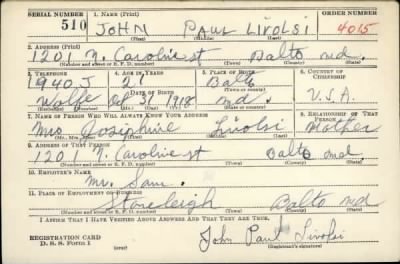 SERIAL NUMBER 1. NAME (Print) ORDER NUMBER
510 JOHN PAUL LIVOLSI 4015
(First) (Middle) (Last)
2. ADDRESS (Print)
1201 N. Caroline st Balto md.
(Number and street or R. F. D. number) (Town) (County) (State)
3. TELEPHONE 4. AGE IN YEARS 5. PLACE OF BIRTH 6. COUNTRY OF CITIZENSHIP
940 J 21 Balto
DATE OF BIRTH (Town or county)
Wolfe 1918 md. U.S.A.
(Exchange) (Mo.) (Day) (Yr.) (State or country)
7. NAME OF PERSON WHO WILL ALWAYS KNOW YOUR ADDRESS 8. RELATIONSHIP OF THAT PERSON
Mrs. Josephine Livolsi Mother
(Mr., Mrs., Miss) (First) (Middle) (Last)
9. ADDRESS OF THAT PERSON
1201 N. Caroline st Balto md.
(Number and street or R. F. D. number) (Town) (County) (State)
10. EMPLOYER'S NAME
Mr. Sam.
11. PLACE OF EMPLOYMENT OR BUSINESS
Stoneleigh Balto md
(Number and street or R. F. D. number) (Town) (County) (State)
I AFFIRM THAT I HAVE VERIFIED ABOVE ANSWERS AND THAT THEY ARE TRUE.
REGISTRATION CARD
D. S. S. Form 1 (over) John Paul Livolsi
(Registrant's signature)